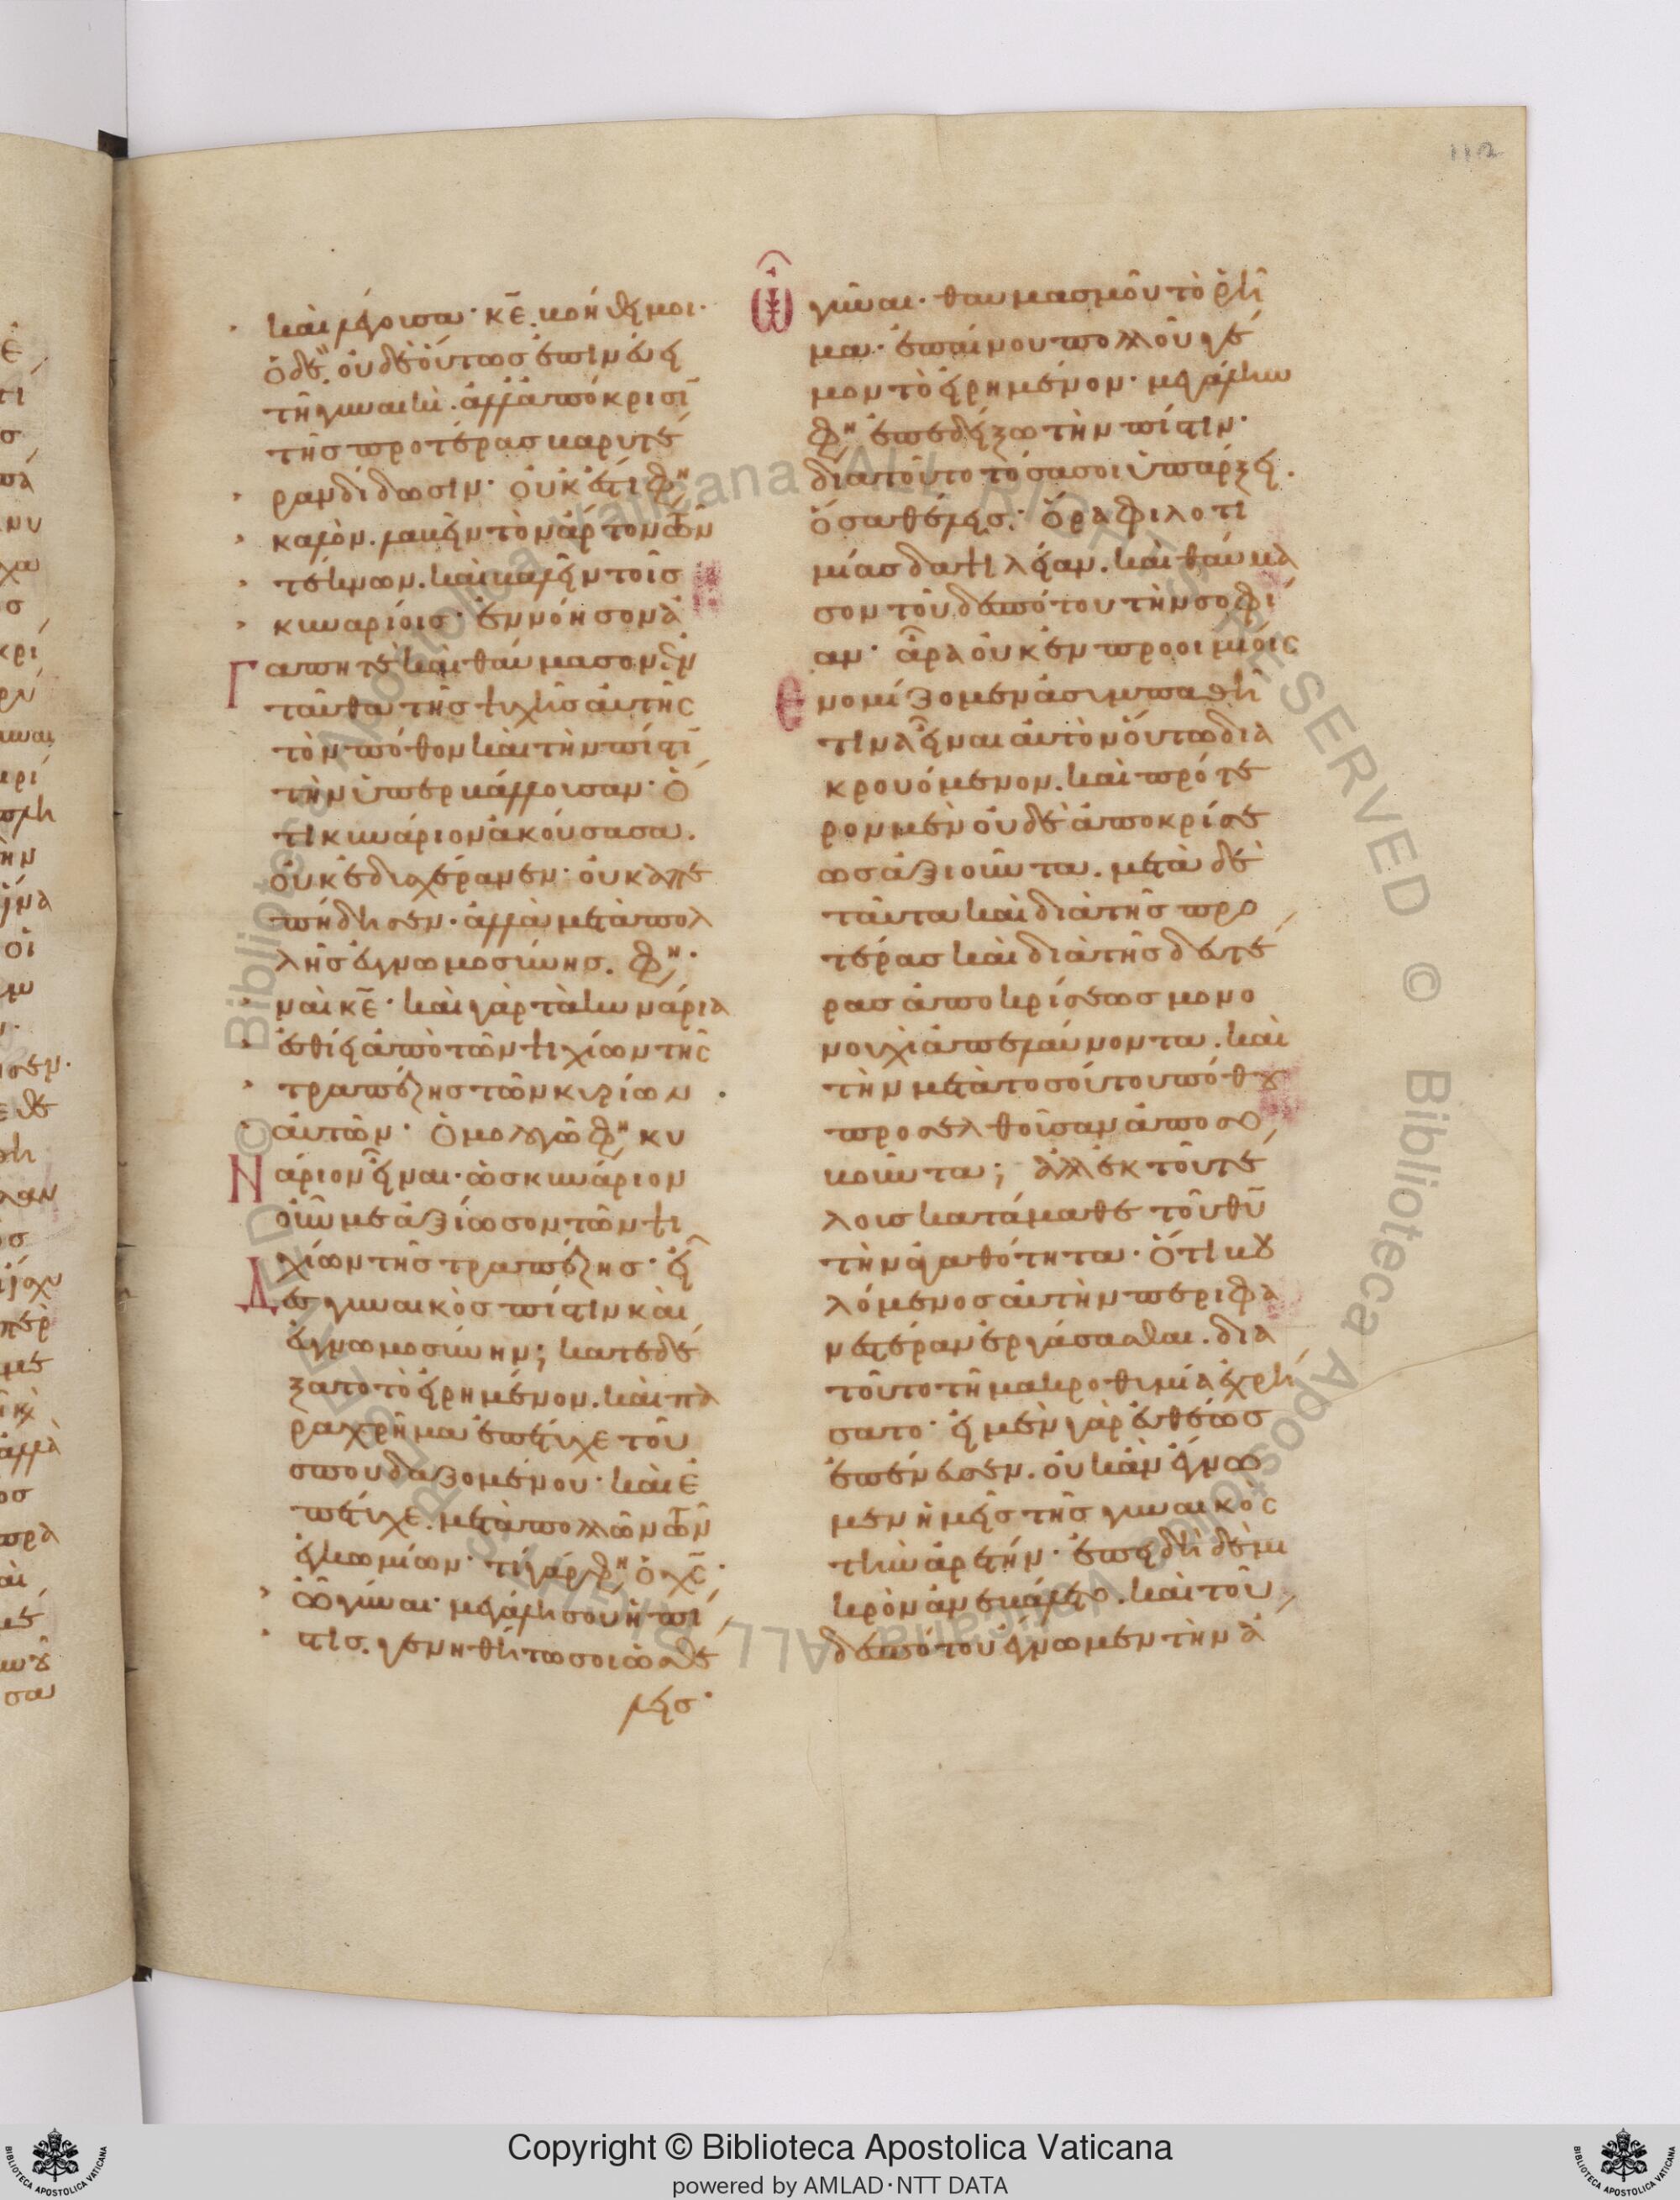 112
καὶ λέγουσα· κ̅ε̅. βοήθει μοι·
ὁ δὲ, οὐδὲ οὕτως ἐπινεύει
τῆ γυναικὶ. ἀλλὰ ἀπόκρισϊ
τῆς προτέρας βαρυτέ
ραν δίδωσιν· οὐκ ἔστι φη
καλὸν. λαβεῖν τὸν ἄρτον τῶν
τέκνων. καὶ βαλεῖν τοῖς
κυναρίοις· ἐννόησον ἀ
γαπητὲ καὶ θαύμασον ἐν
ταῦθα τῆς ψυχῆς αὐτῆς
τὸν πόθον καὶ τὴν πίστι
τὴν ὑπερβάλλουσαν· ὅ
τι κυνάριον ἀκούσασα.
οὐκ ἐδυσχέρανεν· οὐκ ἀπε
πήδησεν. ἀλλὰ μετὰ πολ
λῆς εὐγνωμοσύνης. φη·
ναὶ κ̅ε̅· καὶ γὰρ τὰ κυνάρια
ἐσθίει ἀπὸ τῶν ψιχίων τῆς
τραπέζης τῶν κυρίων
αὐτῶν· ὁμολογῶ φη κυ
νάριον εἶναι· ὡς κυνάριον
οὖν με ἀξίωσον τῶν ψι
χίων τῆς τραπέζης· εἶ
δες γυναικὸς πίστιν καὶ
εὐγνωμοσύνην; κατεδέ
ξατο τὸ εἰρημένον. καὶ πα
ραχρῆμα ἐπέτυχε τοῦ
σπουδαζομένου· καὶ ἐ
πέτυχε. μετὰ πολλῶν τῶν
ἐγκωμίων· τί γάρ φη ὁ χ̅ς̅·
ὦ γύναι· μεγάλη σου ἡ πί
στις. γενηθήτω σοι ὡς θέ
λεις·
Ὦ γύναι· θαυμασμοῦ τὸ ῥῆ
μα· ἐπαίνου πολλοῦ γέ
μον τὸ εἰρημένον· μεγάλην
φη ἐπεδείξω τὴν πίστιν·
διατοῦτο τόσα σοι ὑπάρξει.
ὅσα θέλεις· ὅρα φιλοτι
μίας δαψίλειαν. καὶ θαύμα
σον τοῦ δεσπότου τὴν σοφί
αν· ἆρα οὐκ ἐν προοιμίοις
ἐνομίζομεν ἀσυμπαθῆ
τινὰ εἶναι αὐτὸν οὕτω δια
κρουόμενον. καὶ πρότε
ρον μὲν οὐδὲ ἀποκρίσε
ως ἀξιοῦντα. μετὰ δὲ
ταῦτα καὶ διὰ τῆς προ
τέρας καὶ διὰ τῆς δευτέ
ρας ἀποκρίσεως μονο
νουχὶ ἀπελαύνοντα. καὶ
τὴν μετὰ τοσούτου πόθου
προσελθοῦσαν ἀποσο
βοῦντα; ἀλλ' ἐκ τοῦ τέ
λους κατάμαθε τοῦ θ̅υ̅
τὴν ἀγαθότητα· ὅτι βου
λόμενος αὐτὴν περιφα
νεστέραν ἐργάσασθαι. δια
τοῦτο τῆ μακροθυμία ἐχρή
σατο· εἰ μὲν γὰρ εὐθέως
ἐπένευσεν. οὐκ ἂν ἔγνω
μεν ἡμεῖς τῆς γυναικὸς
τὴν ἀρετήν· ἐπειδὴ δὲ μι
κρὸν ἀνεβάλετο. καὶ τοῦ
δεσπότου ἔγνωμεν τὴν ἀ
Copyright © Biblioteca Apostolica Vaticana
powered by AMLAD·NTT DATA